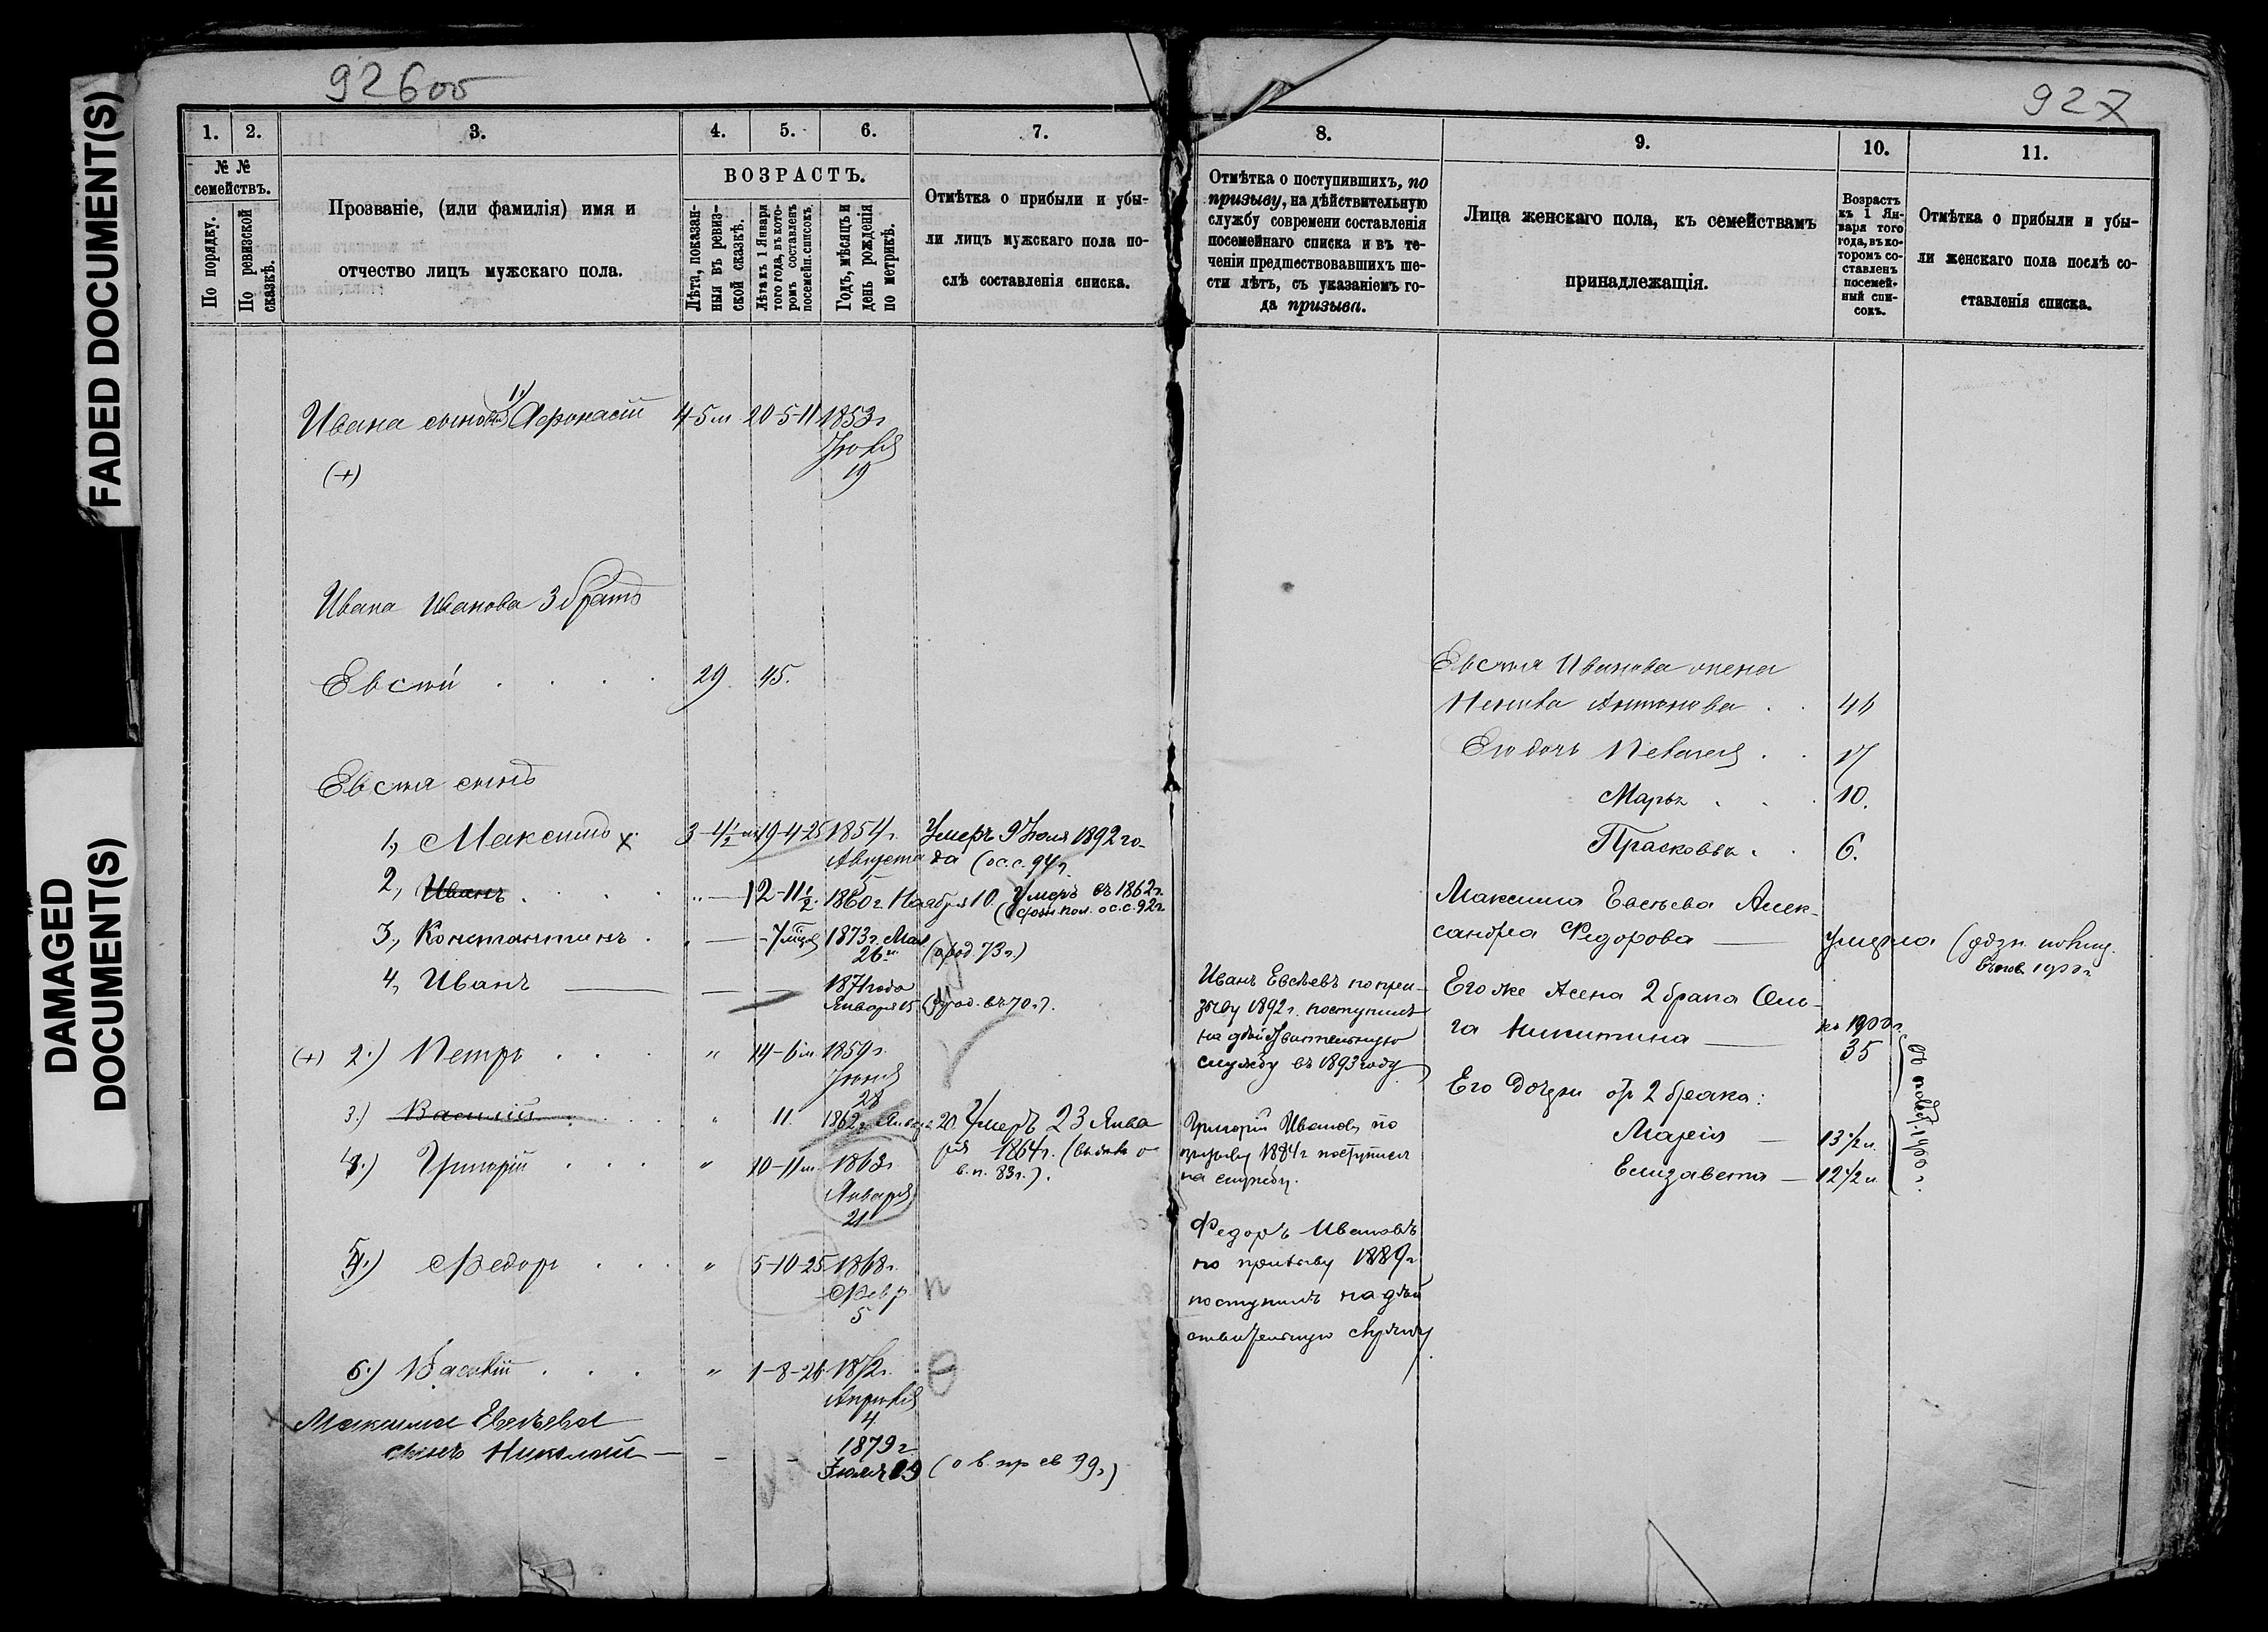 FADED DOCUMENT(S)
DAMAGED
DOCUMENT(S)
926об
1.
2.
3.
4.
5.
6.
7.
№ №
семействъ.
По порядку.
По ревизской
сказкѣ.
Прозваніе, (или фамилія) имя и
отчество лицъ мужскаго пола.
ВОЗРАСТЪ.
Лѣта, показан-
ныя въ ревиз-
ской сказкѣ.
Лѣта къ 1 Января
того года, въ кото-
ромъ составленъ
посемейн. списокъ.
Годъ, мѣсяцъ и
день рожденія
по метрикѣ.
Отмѣтка о прибыли и убы-
ли лицъ мужскаго пола по-
слѣ составленія списка.
Ивана сыновья 1.) Афонасій 4-5 м. 20-5-11 1853 г.
19
(+)
Ивана Иванова 3 братъ
Евсѣй 29 45.
Евсѣя сынъ
1., Максимъ х 3-4½ 19-4-25 1854 г. Умеръ 9 Іюля 1892 го-
Августа да (ос.с. 94 г.
2., Иванъ 12-11½ 1860 г. Ноября 10. Умеръ въ 1862 г.
о с.с. 92 г.
3., Константинъ -7 мѣс 1873 г. Мая
26 (о род. 73 г.)
4, Иванъ 1871 года
Января 15
(+) 2.) Петръ " 14-6 м. 1859 г.
Іюня
28
3.) Василій " 11. 1862 г. Январ. 20. Умеръ 23 Янва
ря 1864 г.
в.п. 83 г.).
4.) Григорій " 10-11 м. 1863 г.
Января
21
5.) Федоръ " 5-10-25 1868 г.
Февр.
5
6.) Василій " 1-8-26 1872 г.
Апрѣля
4
Максима Евсѣева
сынъ Николай 1879 г.
Іюля 29
927
8.
9.
10.
11.
Отмѣтка о поступившихъ, по
призыву, на дѣйствительную
службу современи составленія
посемейнаго списка и въ те-
ченіи предшествовавшихъ ше-
сти лѣтъ, съ указаніемъ го-
да призыва.
Лица женскаго пола, къ семействамъ
принадлежащія.
Возрастъ
къ 1 Ян-
варя того
года, въ ко-
торомъ со-
ставленъ
посемей-
ный спи-
сокъ.
Отмѣтка о прибыли и убы-
ли женскаго пола послѣ со-
ставленія списка.
Евсѣя Иванова жена
Антонова
Его дочь Пелагея 17
Марья 10.
Прасковья 6.
Максима Евсѣева Алек-
сандра Федорова умерла
Его же жена 2 брака Оль-
га Никитина къ 1900 г.
35
Его дочери отъ 2 брака:
Марія 13½ л.
Елизавета 12½ л.
Иванъ Евсѣевъ по при-
зыву 1892 г. поступилъ
на дѣйствительную
службу въ 1893 году
Григорій Ивановъ по
призыву 1884 г. поступилъ
на службу.
Федоръ Ивановъ
по призыву 1889 г.
поступилъ на дѣй
ствительную службу